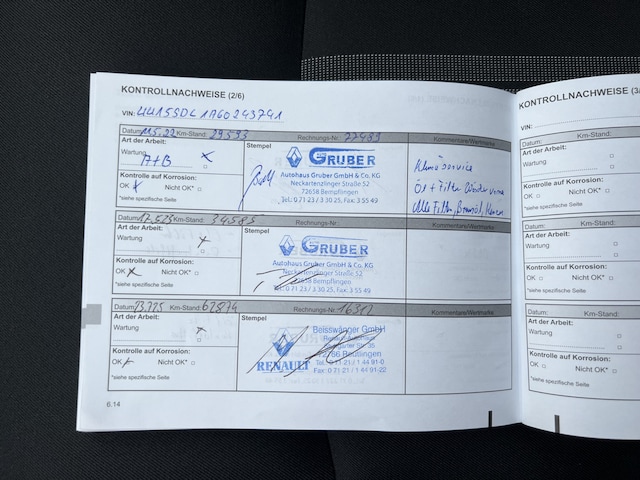 KONTROLLNACHWEISE (2/6)
VIN: UU15SDC1A60243741
Datum: 11.5.22 Km-Stand: 29593 Rechnungs-Nr.: 27489 Kommentare/Wertmarke
Art der Arbeit:
Wartung A+B x
Kontrolle auf Korrosion:
OK x Nicht OK*
*siehe spezifische Seite
Stempel
GRUBER
Autohaus Gruber GmbH & Co. KG
Neckartenzlinger Straße 52
72658 Bempflingen
Tel. 0 71 23 / 3 30 25, Fax: 3 55 49
Klimaservice
Öl + Filter
Alle Filter,
Datum: Km-Stand: 34583 Rechnungs-Nr.: Kommentare/Wertmarke
Art der Arbeit:
Wartung x
Kontrolle auf Korrosion:
OK x Nicht OK*
*siehe spezifische Seite
Stempel
GRUBER
Autohaus Gruber GmbH & Co. KG
Neckartenzlinger Straße 52
72658 Bempflingen
Tel. 0 71 23 / 3 30 25, Fax: 3 55 49
Datum: Km-Stand: 67874 Rechnungs-Nr.: 16317 Kommentare/Wertmarke
Art der Arbeit:
Wartung x
Kontrolle auf Korrosion:
OK x Nicht OK*
*siehe spezifische Seite
Stempel
RENAULT
Beisswänger GmbH
72766 Reutlingen
Tel. 0 71 21 / 1 44 91-0
Fax 0 71 21 / 1 44 91-22
6.14
KONTROLLNACHWEISE (3/
VIN:
Datum: Km-Stand:
Art der Arbeit:
Wartung
Kontrolle auf Korrosion:
OK Nicht OK*
*siehe spezifische Seite
Datum: Km-Stand:
Art der Arbeit:
Wartung
Kontrolle auf Korrosion:
OK Nicht OK*
*siehe spezifische Seite
Datum: Km-Stand:
Art der Arbeit:
Wartung
Kontrolle auf Korrosion:
OK Nicht OK*
*siehe spezifische Seite